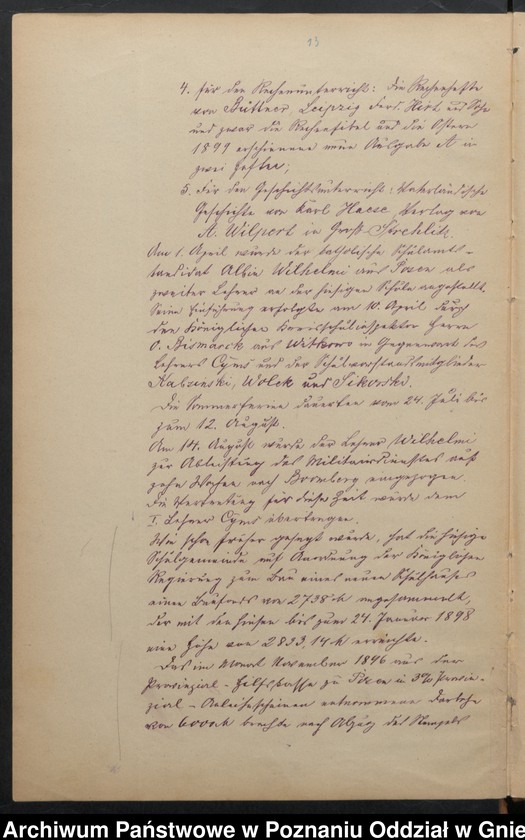 13
4. für den Rechenunterricht: die Rechenhefte
von Büttner, Leipzig Ferd. Hirt und Sohn
und zwar die Rechenfibel und die Ostern
1899 erschienene neue Ausgabe A in
zwei Heften;
5. Für den Geschichtsunterricht: Vaterländische
Geschichte von Karl Haese, Verlag von
A. Wilpert in Groß Strehlitz.
Am 1. April wurde der katholische Schulamts-
kandidat Albin Wilhelmi aus Posen als
zweiter Lehrer an der hiesigen Schule angestellt.
Seine Einführung erfolgte am 10. April durch
den Königlichen Kreisschulinspektor Herrn
v. Bismarck aus Witkowo in Gegenwart des
Lehrers Cyms und der Schulvorstandsmitglieder
Wolek und Sikorski.
Die Sommerferien dauerten vom 24. Juli bis
zum 12. August.
Am 14. August wurde der Lehrer Wilhelmi
zur Ableistung des Militairdienstes auf
zehn Wochen nach Bromberg eingezogen.
Die Vertretung für diese Zeit wurde dem
I. Lehrer Cyms übertragen.
Wie schon früher gesagt wurde, hat die hiesige
Schulgemeinde auf Anordnung der Königlichen
Regierung zum Bau eines neuen Schulhauses
einen Baufonds von 2738 M angesammelt,
der mit den Zinsen bis zum 24. Januar 1898
eine Höhe von 2833,14 M erreichte.
Das im Monat November 1896 aus der
Provinzial-Hilfskasse zu Posen in 3% Provin-
zial-Anleihescheinen entnommene Darlehn
von 6000 M brachte nach Abzug des Stempels
Archiwum Państwowe w Poznaniu Oddział w Gnie